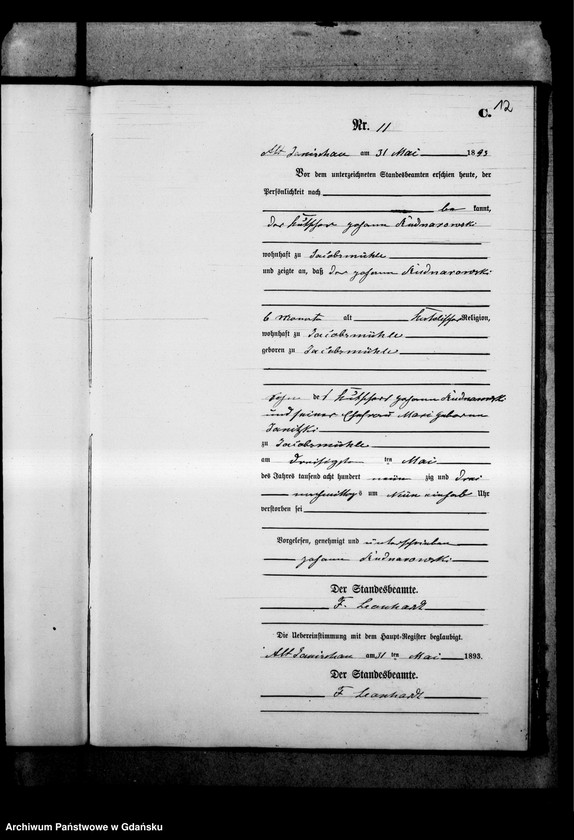 C. 12
Nr. 11
Alt Janischau am 31 Mai 1893
Vor dem unterzeichneten Standesbeamten erschien heute, der
Persönlichkeit nach
be kannt,
der Kutscher Johann Rudnarowski
wohnhaft zu Jacobsmühle
und zeigte an, daß der Johann Rudnarowski
6 Monate alt katolischer Religion,
wohnhaft zu Jacobsmühle
geboren zu Jacobsmühle
Sohn des Kutschers Johann Rudnarowski
und seiner Ehefrau Mari geborene
Janitzki
zu Jacobsmühle
am dreisigsten ten Mai
des Jahres tausend acht hundert neun zig und drei
nachmittags um Neun einhalb Uhr
verstorben sei
Vorgelesen, genehmigt und unterschrieben
Johann Rudnarowski
Der Standesbeamte.
F. Leonhardt
Die Uebereinstimmung mit dem Haupt-Register beglaubigt.
Alt Janischau am 31 ten Mai 1893.
Der Standesbeamte.
F Leonhardt
Archiwum Państwowe w Gdańsku